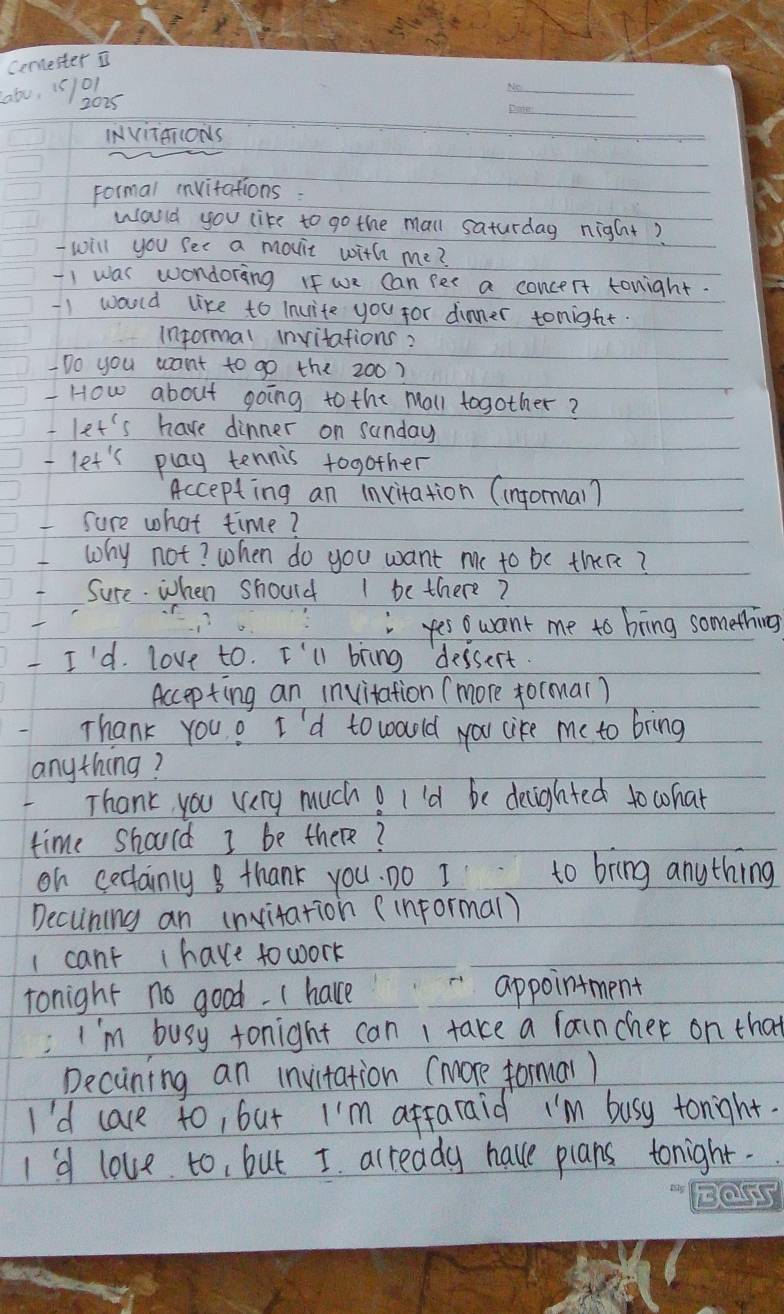 Cemester II
Rabu, 15/01
2025
No
Date
INVITATIONS
Formal invitations :
Would you like to go the mall saturday night?
- will you see a movie with me?
- I was wondoring if we can see a concert tonight.
- I would like to invite you for dinner tonight.
Informal invitations :
- Do you want to go the zoo?
- How about going to the mall togother?
- let's have dinner on sunday
- let's play tennis togother
Accepting an invitation (informal)
- Sure what time?
- Why not? when do you want me to be there?
- Sure. when should I be there?
- yes! want me to bring something
- I'd. love to. I'll bring dessert.
Accepting an invitation (more formal)
- Thank you! I'd to would you like me to bring
anything?
- Thank you very much! I'd be delighted to what
time should I be there?
oh certainly! thank you. Do I to bring anything
Declining an invitation (informal)
I cant I have to work
Tonight no good. I have appointment
I'm busy tonight can I take a rain chek on that
Declining an invitation (more formal)
I'd love to, but I'm affaraid I'm busy tonight.
I'd love to, but I. already have plans tonight.
BOSS